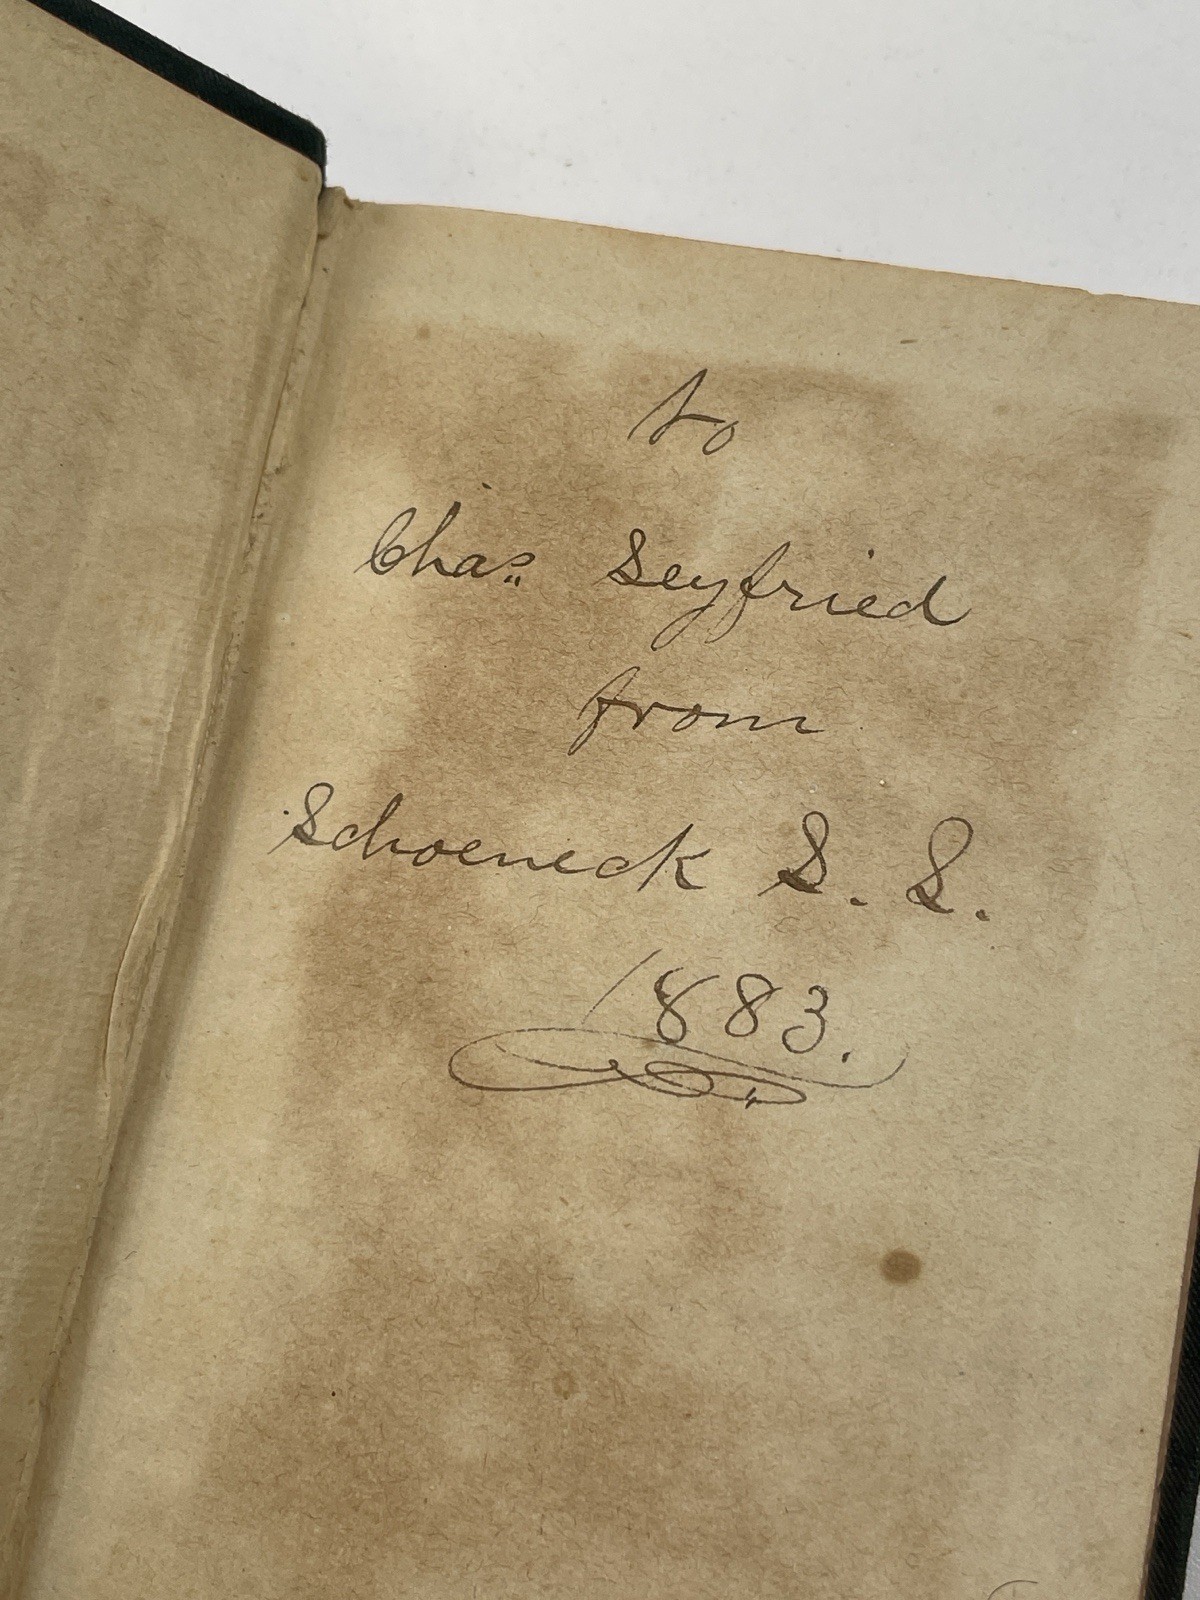 to
Chas. Seyfried
from
Schoeneck S. S.
1883.